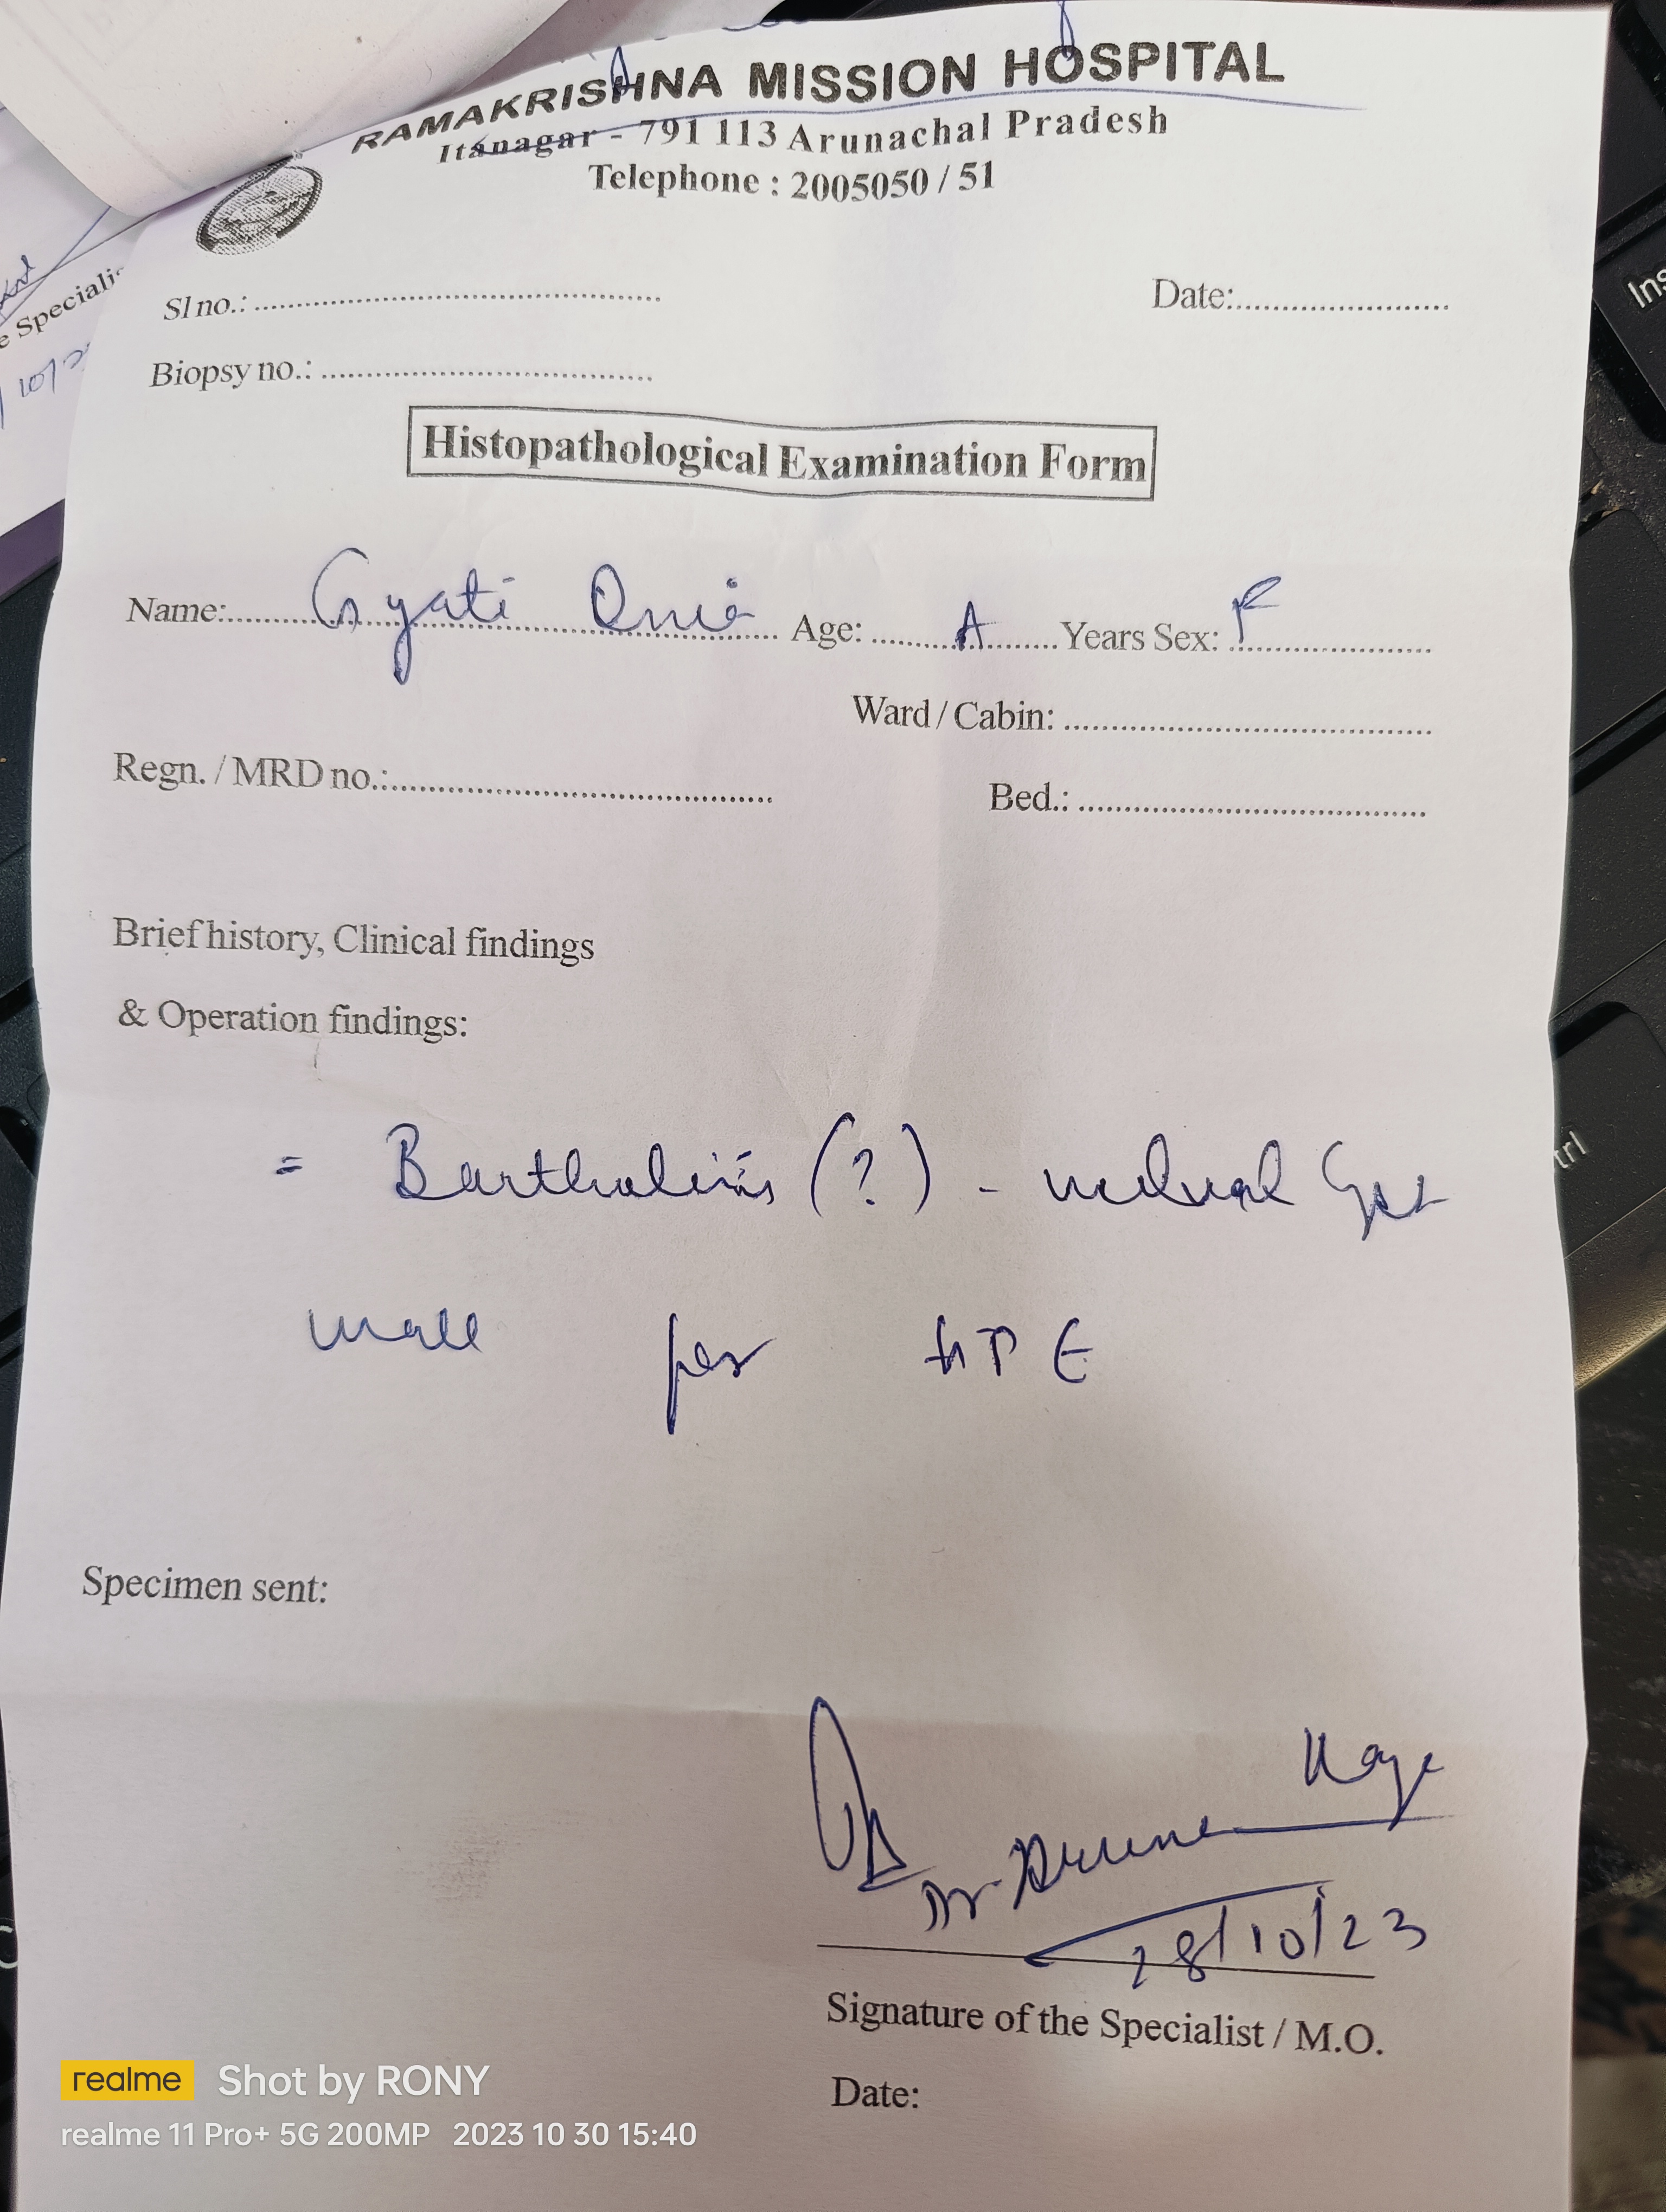 RAMAKRISHNA MISSION HOSPITAL
Itanagar - 791 113 Arunachal Pradesh
Telephone : 2005050 / 51
e Specialis
10/2
Sl no.: Date:
Biopsy no.:
Histopathological Examination Form
Name: Gyati Age: A Years Sex: F
Ward / Cabin:
Regn. / MRD no.:
Bed.:
Brief history, Clinical findings
& Operation findings:
= Bartholin's (?) - Cyst
wall for HPE
Specimen sent:
Dr
28/10/23
Signature of the Specialist / M.O.
Date:
realme Shot by RONY
realme 11 Pro+ 5G 200MP 2023 10 30 15:40
Ins
trl